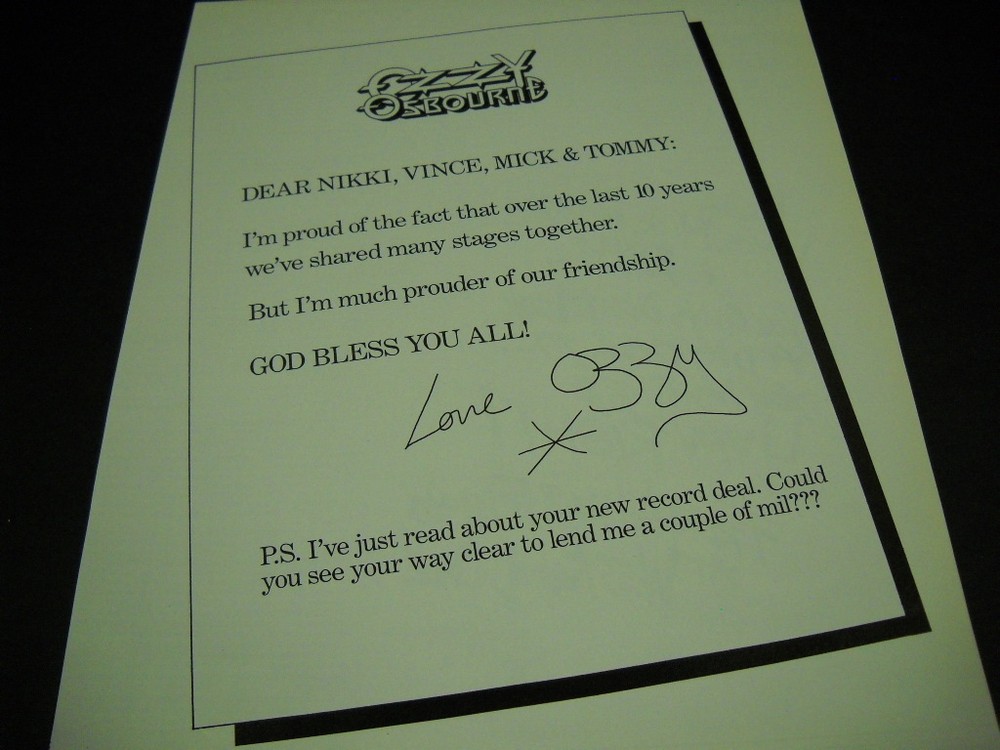 OZZY
OSBOURNE
DEAR NIKKI, VINCE, MICK & TOMMY:
I'm proud of the fact that over the last 10 years
we've shared many stages together.
But I'm much prouder of our friendship.
GOD BLESS YOU ALL!
Love OZZY
P.S. I've just read about your new record deal. Could
you see your way clear to lend me a couple of mil???